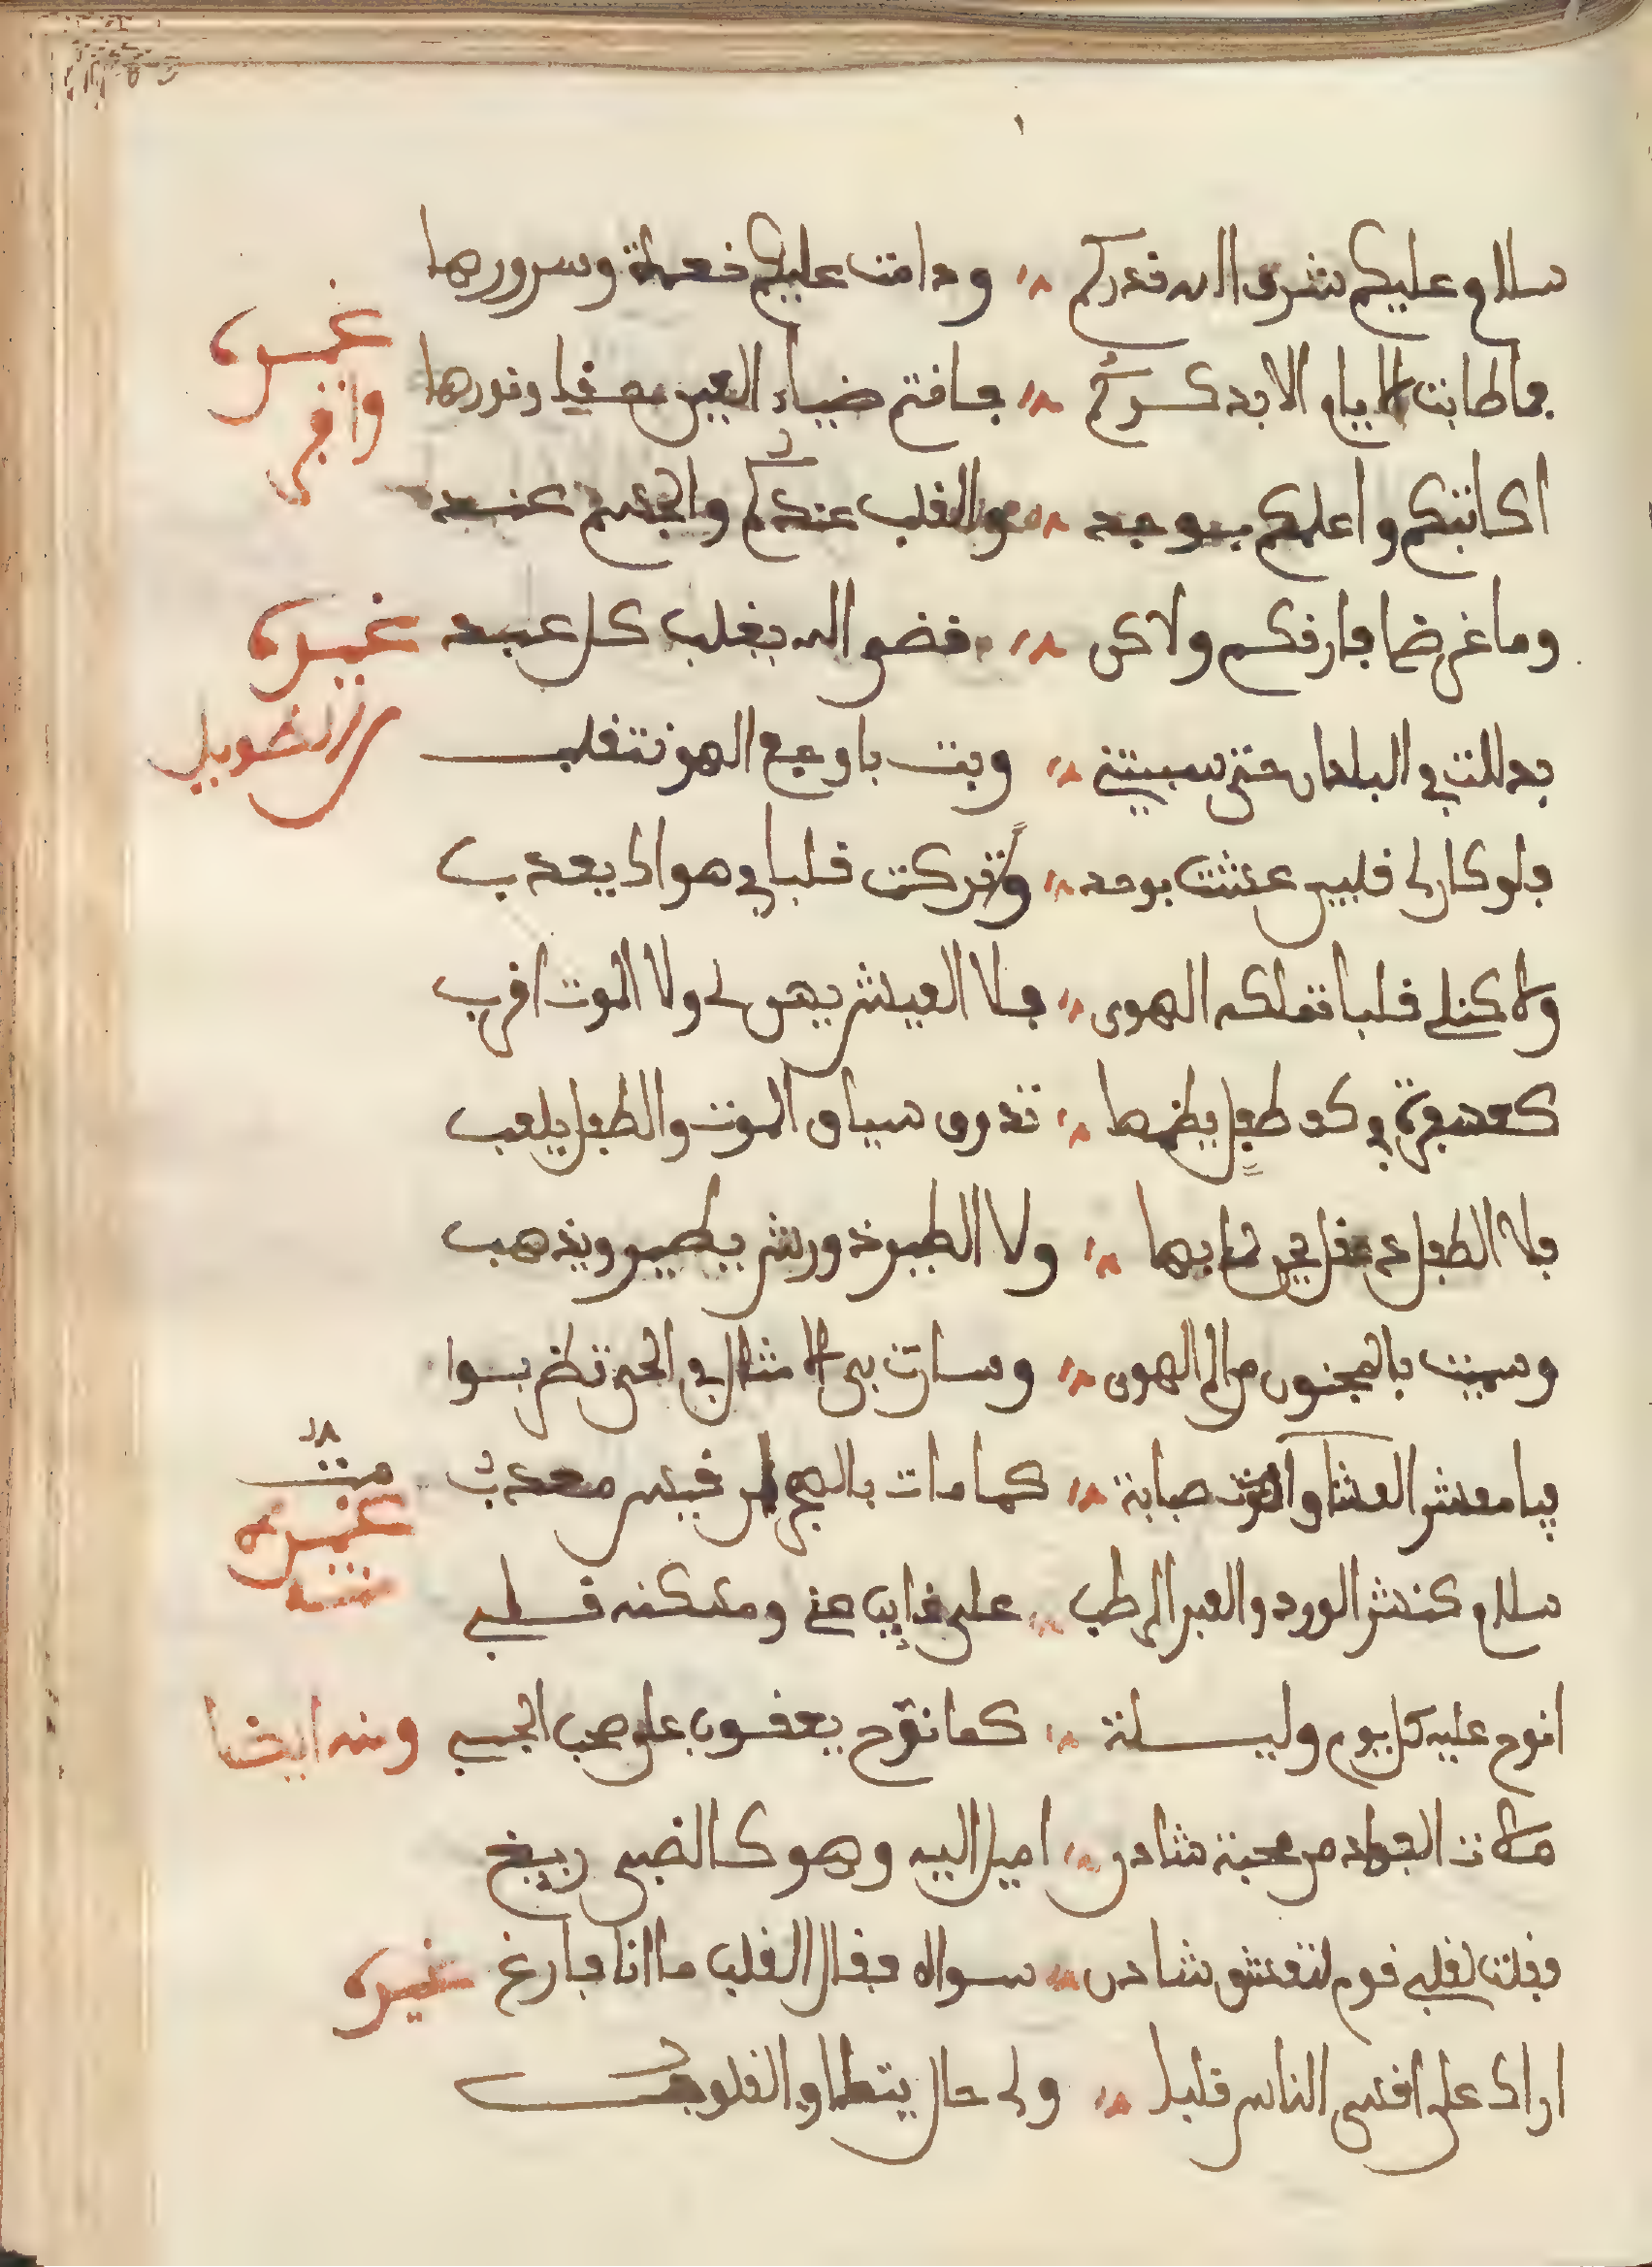 سلام عليكم شرف الله قدركم ودامت عليكم نعمة وسرورها
فما طابت الايام الا بذكركم فانتم ضياء العين حقيا ونورها
غيره
وافر
اكاتبكم واعلمكم بوجد والقلب عندكم والجسم عنده
وما غرضا فارقكم ولاكن قضى الله يغلب كل عبده
غيره
الطويل
بدللت في البلدان حتى سبيتني وبت باوجع الهوى نتقلب
فلو كان لي قلبين عشت بوحد وتركت قلبا في هواك يعذب
ولاكن لي قلبا تملكه الهوى فلا العيش يهوى لي ولا الموت اقرب
كعصفورة في كف طفل يضمها تذوق سياق الموت والطفل يلعب
فلا الطفل ذو عقل يحن لما بها ولا الطير ذو ريش يطير ويذهب
وسميت بالمجنون من الم الهوى وسارت بي الامثال في الحي تضرب سوا
فيا معشر العشاق موتوا صبابة كما مات بالهجران قيس معذب
تمت
غيره
منه
سلام كنشر الورد والعبر الرطب على غايب عني ومسكنه قلبي
انوح عليه كل يوم وليلة كما نوح يعقوب على صحب الجب
ومنه ايضا
ملات الفواد من محبة شادن اميل اليه وهو كالضبي ريغ
فقلت لقلبي قوم لتعشق شادن سواه فقال القلب ما انا فارغ
غيره
اراك على اقسى الناس قلبا ولي حال يتطاوى القلوب